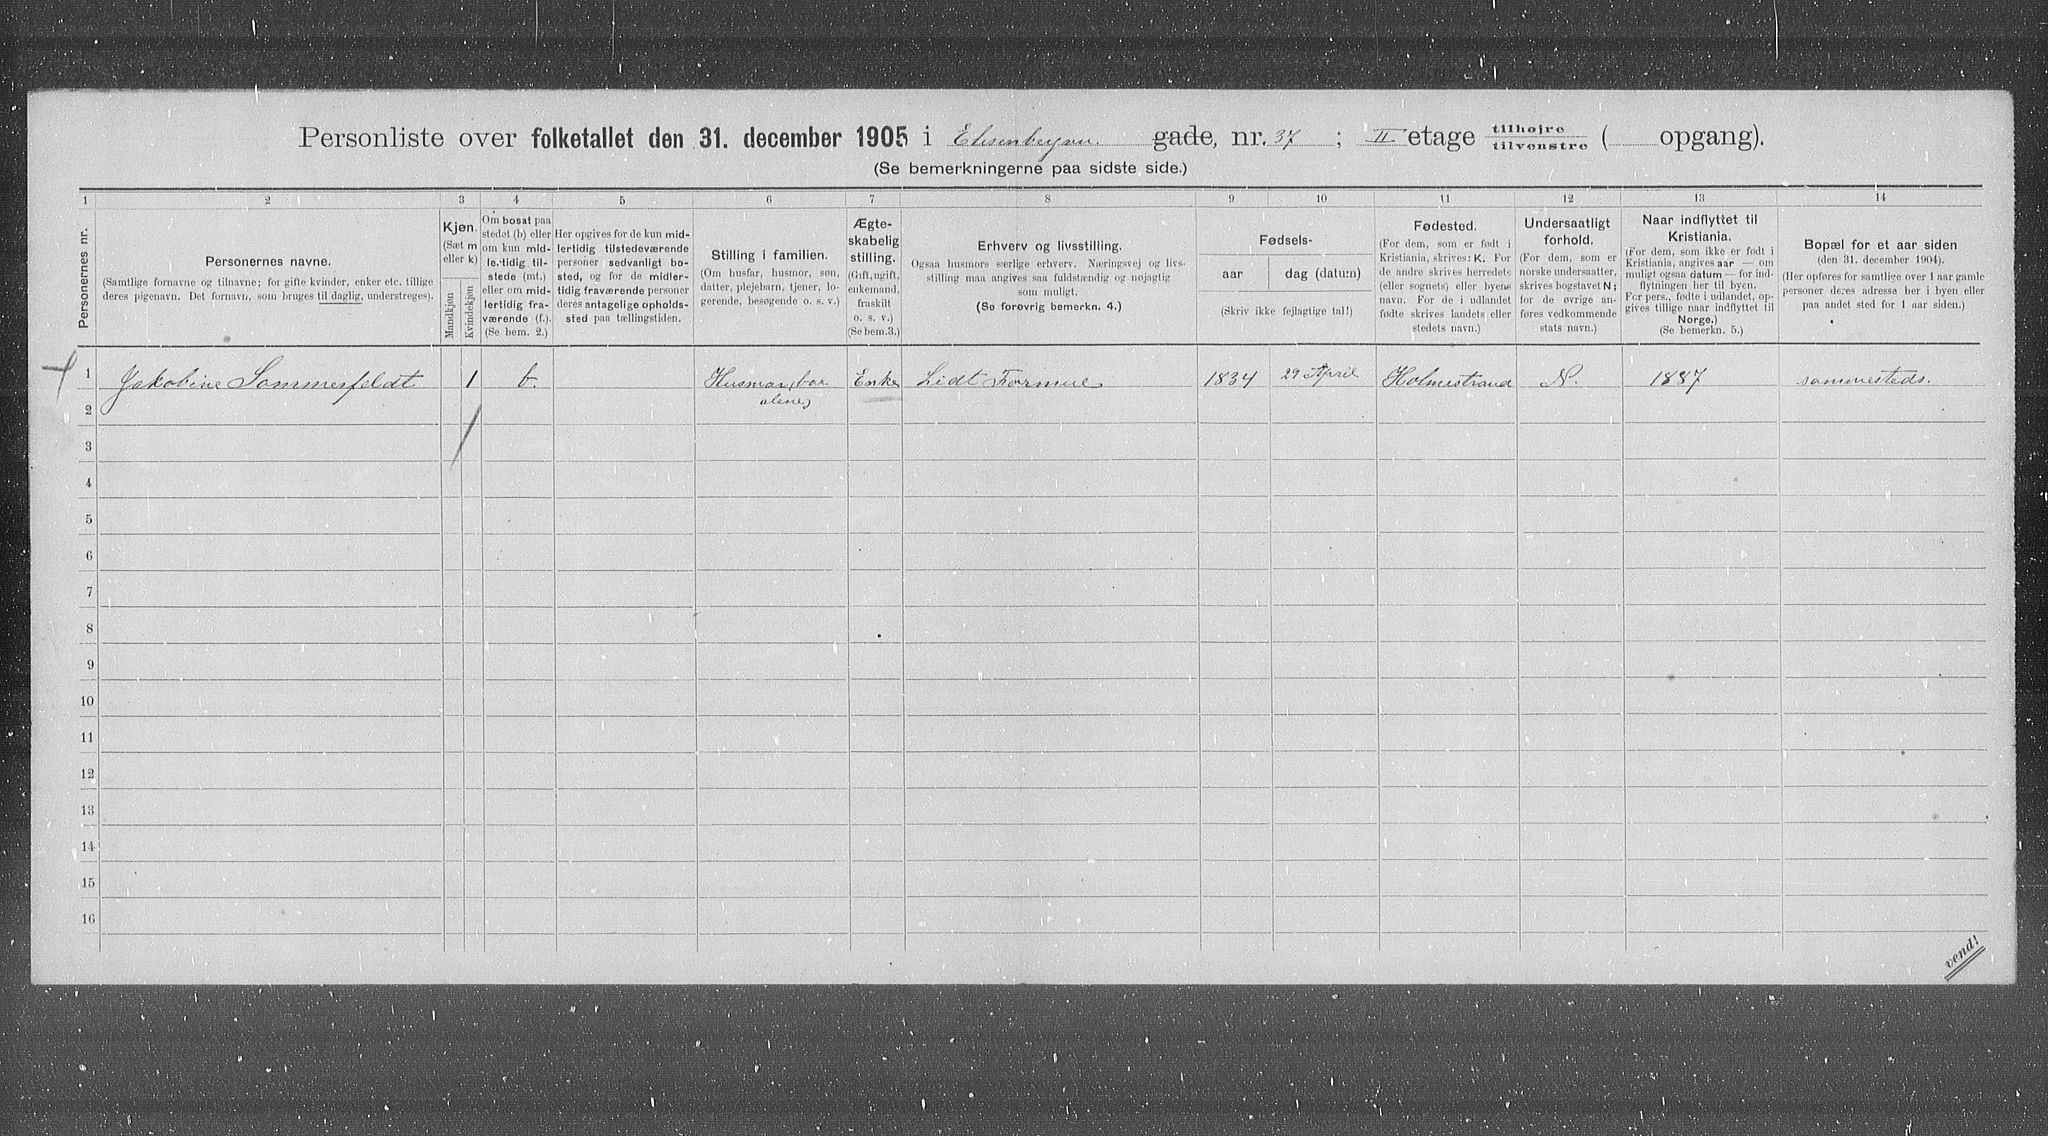 Personliste over folketallet den 31. december 1905 i Elisenbergvn. gade, nr. 37 ; II etage tilhøjre tilvenstre ( opgang).
(Se bemerkningerne paa sidste side.)
1 2 3 4 5 6 7 8 9 10 11 12 13 14
Personernes nr.
Personernes navne.
(Samtlige fornavne og tilnavne; for gifte kvinder, enker etc. tillige
deres pigenavn. Det fornavn, som bruges til daglig, understreges).
Kjøn.
(Sæt m
eller k)
Mandkjøn
Kvindekjøn
Om bosat paa
stedet (b) eller
om kun mid-
lertidig til-
stede (mt.)
eller om mid-
lertidig fra-
værende (f.).
(Se bem. 2.)
Her opgives for de kun mid-
lertidig tilstedeværende
personer sedvanligt bo-
sted, og for de midler-
tidig fraværende personer
deres antagelige opholds-
sted paa tællingstiden.
Stilling i familien.
(Om husfar, husmor, søn,
datter, plejebarn, tjener, lo-
gerende, besøgende o. s. v.)
Ægte-
skabelig
stilling.
(Gift, ugift,
enkemand,
fraskilt
o. s. v.)
(Se bem. 3.)
Erhverv og livsstilling.
Ogsaa husmors særlige erhverv. Næringsvej og livs-
stilling maa angives saa fuldstændig og nøjagtig
som muligt.
(Se forøvrig bemerkn. 4.)
Fødsels-
aar
dag (datum)
(Skriv ikke fejlagtige tal!)
Fødested.
(For dem, som er født i
Kristiania, skrives: K. For
de andre skrives herredets
(eller sognets) eller byens
navn. For de i udlandet
fødte skrives landets eller
stedets navn.)
Undersaatligt
forhold.
(For dem, som er
norske undersaatter,
skrives bogstavet N;
for de øvrige an-
føres vedkommende
stats navn.)
Naar indflyttet til
Kristiania.
(For dem, som ikke er født i
Kristiania, angives aar — om
muligt ogsaa datum — for ind-
flytningen her til byen.
For pers., fødte i udlandet, op-
gives tillige naar indflyttet til
Norge.)
(Se bemerkn. 5.)
Bopæl for et aar siden
(den 31. december 1904).
(Her opføres for samtlige over 1 aar gamle
personer deres adresse her i byen eller
paa andet sted for 1 aar siden.)
1 Jakobine Sommerfeldt 1 b. Husmor, bor alene Enke Lidt Formue 1834 29 April Holmestrand N. 1887 sammesteds.
2
3
4
5
6
7
8
9
10
11
12
13
14
15
16
vend!